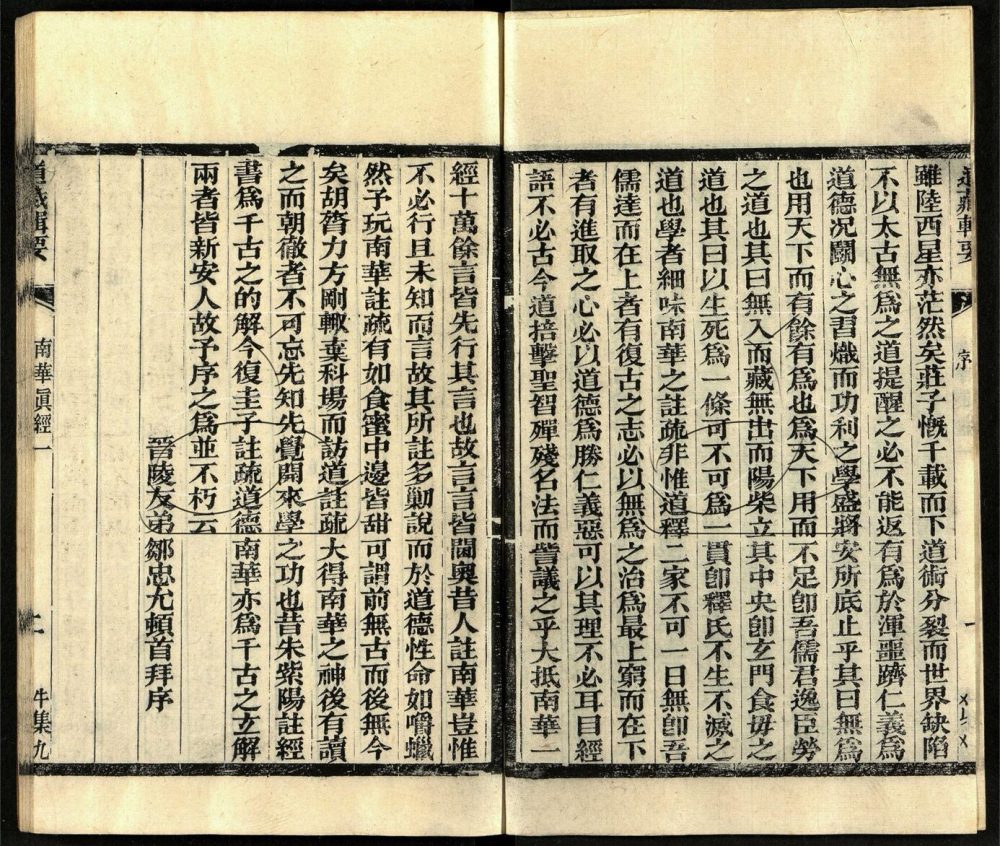 道藏輯要
序
一
雖陸西星亦茫然矣莊子慨千載而下道術分裂而世界缺陷
不以太古無為之道提醒之必不能返有為於渾噩躋仁義為
道德況鬭心之習熾而功利之學盛將安所底止乎其曰無為
也用天下而有餘有為也為天下用而不足卽吾儒君逸臣勞
之道也其曰無入而藏無出而陽柴立其中央卽玄門食毋之
道也其曰以生死為一條可不可為一貫卽釋氏不生不滅之
道也學者細味南華之註疏非惟道釋二家不可一日無卽吾
儒達而在上者有復古之志必以無為之治為最上窮而在下
者有進取之心必以道德為勝仁義惡可以其理不必耳目經
語不必古今道掊擊聖智殫殘名法而訾議之乎大抵南華一
經十萬餘言皆先行其言也故言言皆閫奧昔人註南華豈惟
不必行且未知而言故其所註多勦說而於道德性命如嚼蠟
然予玩南華註疏有如食蜜中邊皆甜可謂前無古而後無今
矣胡膂力方剛輙棄科場而訪道註疏大得南華之神後有讀
之而朝徹者不可忘先知先覺開來學之功也昔朱紫陽註經
書為千古之的解今復圭子註疏道德南華亦為千古之立解
兩者皆新安人故予序之為並不朽云
晉陵友弟鄒忠允頓首拜序
道藏輯要
南華眞經一
二
牛集九